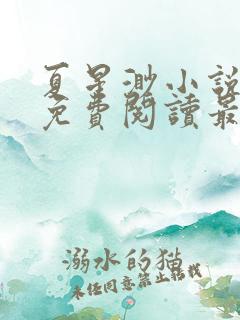 夏星渺小說
免費閱讀最
溺水的猫
未任同意禁止轉載